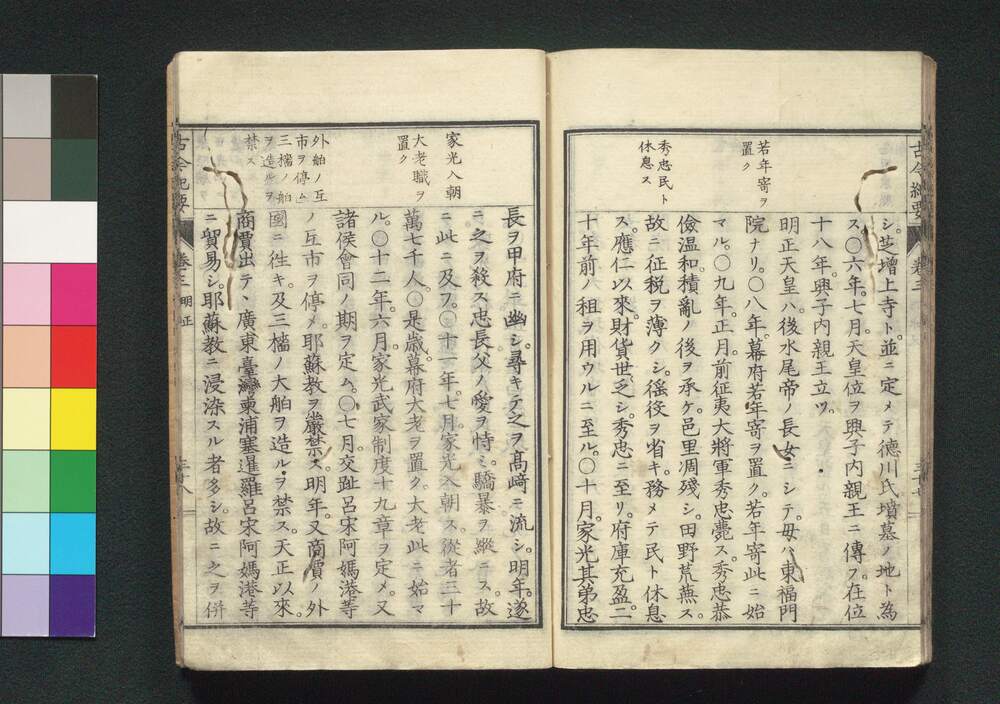 古今紀要
卷三
三十七
若年寄ヲ
置ク
秀忠民ト
休息ス
シ。芝增上寺ト。並ニ定メテ德川氏墳墓ノ地ト為
ス。〇六年。七月。天皇位ヲ興子內親王ニ傳フ。在位
十八年。興子內親王立ツ。
明正天皇ハ。後水尾帝ノ長女ニシテ。母ハ東福門
院ナリ。〇八年。幕府若年寄ヲ置ク。若年寄此ニ始
マル。〇九年。正月。前征夷大將軍秀忠薨ス。秀忠恭
儉温和。積亂ノ後ヲ承ケ。邑里凋殘シ。田野荒蕪ス。
故ニ征稅ヲ薄クシ。徭役ヲ省キ。務メテ民ト休息
ス。應仁以來。財貨世ニ乏シ。秀忠ニ至リ。府庫充盈。二
十年前ノ租ヲ用ウルニ至ル。〇十月。家光其弟忠
家光入朝
大老職ヲ
置ク
外舶ノ互
市ヲ停ム
三檣ノ舶
ヲ造ルヲ
禁ス
長ヲ甲府ニ幽シ。尋キテ之ヲ髙﨑ニ流シ。明年。遂
ニ之ヲ殺ス。忠長父ノ愛ヲ恃ミ。驕暴ヲ縱ニス。故
ニ此ニ及フ。〇十一年。七月。家光入朝ス。從者三十
萬七千人。〇是歲。幕府大老ヲ置ク。大老此ニ始マ
ル。〇十二年。六月。家光武家制度十九章ヲ定メ。又
諸侯會同ノ期ヲ定ム。〇七月。交趾呂宋阿媽港等
ノ互市ヲ停メ。耶蘇教ヲ嚴禁ス。明年。又商賈ノ外
國ニ往キ。及三檣ノ大舶ヲ造ルヲ禁ス。天正以來。
商賈出テヽ廣東臺灣柬浦塞暹羅呂宋阿媽港等
ニ貿易シ。耶蘇教ニ浸染スル者多シ。故ニ之ヲ併
古今紀要
卷三 明正
三十八